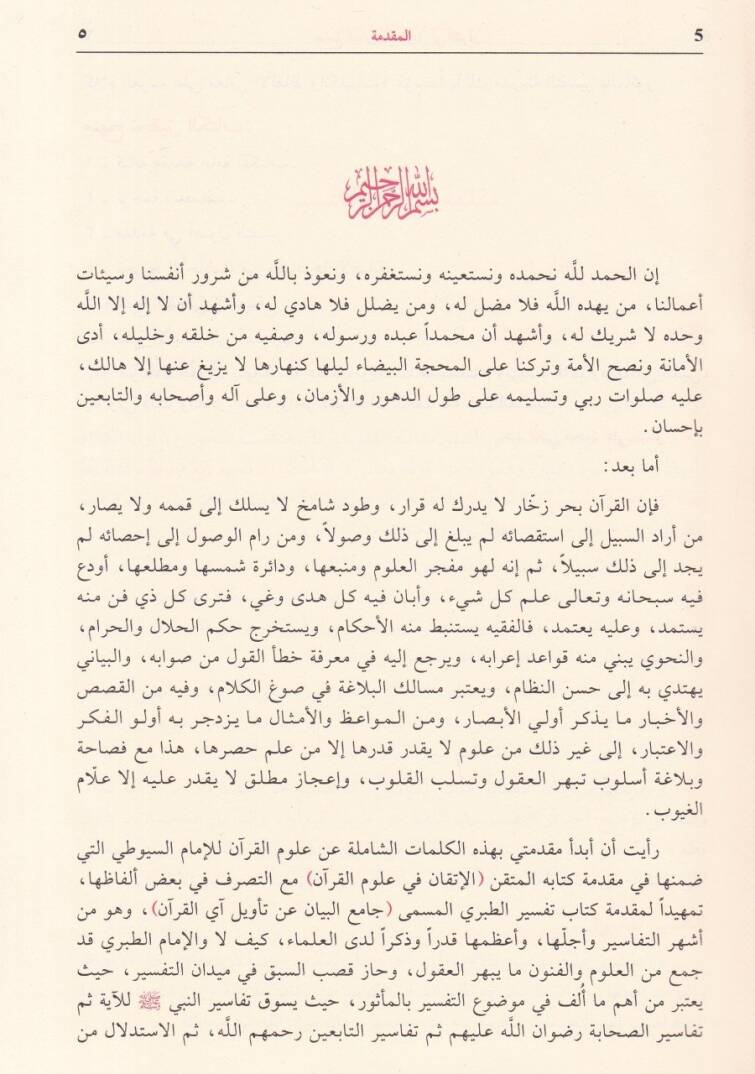 5 المقدمة ٥
بسم الله الرحمن الرحيم
إن الحمد للَّه نحمده ونستعينه ونستغفره، ونعوذ باللَّه من شرور أنفسنا وسيئات
أعمالنا، من يهده اللَّه فلا مضل له، ومن يضلل فلا هادي له، وأشهد أن لا إله إلا اللَّه
وحده لا شريك له، وأشهد أن محمداً عبده ورسوله، وصفيه من خلقه وخليله، أدى
الأمانة ونصح الأمة وتركنا على المحجة البيضاء ليلها كنهارها لا يزيغ عنها إلا هالك،
عليه صلوات ربي وتسليمه على طول الدهور والأزمان، وعلى آله وأصحابه والتابعين
بإحسان.
أما بعد:
فإن القرآن بحر زخّار لا يدرك له قرار، وطود شامخ لا يسلك إلى قممه ولا يصار،
من أراد السبيل إلى استقصائه لم يبلغ إلى ذلك وصولاً، ومن رام الوصول إلى إحصائه لم
يجد إلى ذلك سبيلاً، ثم إنه لهو مفجر العلوم ومنبعها، ودائرة شمسها ومطلعها، أودع
فيه سبحانه وتعالى علم كل شيء، وأبان فيه كل هدى وغي، فترى كل ذي فن منه
يستمد، وعليه يعتمد، فالفقيه يستنبط منه الأحكام، ويستخرج حكم الحلال والحرام،
والنحوي يبني منه قواعد إعرابه، ويرجع إليه في معرفة خطأ القول من صوابه، والبياني
يهتدي به إلى حسن النظام، ويعتبر مسالك البلاغة في صوغ الكلام، وفيه من القصص
والأخبار ما يذكر أولي الأبصار، ومن المواعظ والأمثال ما يزدجر به أولو الفكر
والاعتبار، إلى غير ذلك من علوم لا يقدر قدرها إلا من علم حصرها، هذا مع فصاحة
وبلاغة أسلوب تبهر العقول وتسلب القلوب، وإعجاز مطلق لا يقدر عليه إلا علّام
الغيوب.
رأيت أن أبدأ مقدمتي بهذه الكلمات الشاملة عن علوم القرآن للإمام السيوطي التي
ضمنها في مقدمة كتابه المتقن (الإتقان في علوم القرآن) مع التصرف في بعض ألفاظها،
تمهيداً لمقدمة كتاب تفسير الطبري المسمى (جامع البيان عن تأويل آي القرآن)، وهو من
أشهر التفاسير وأجلّها، وأعظمها قدراً وذكراً لدى العلماء، كيف لا والإمام الطبري قد
جمع من العلوم والفنون ما يبهر العقول، وحاز قصب السبق في ميدان التفسير، حيث
يعتبر من أهم ما أُلف في موضوع التفسير بالمأثور، حيث يسوق تفاسير النبي ﷺ للآية ثم
تفاسير الصحابة رضوان اللَّه عليهم ثم تفاسير التابعين رحمهم اللَّه، ثم الاستدلال من